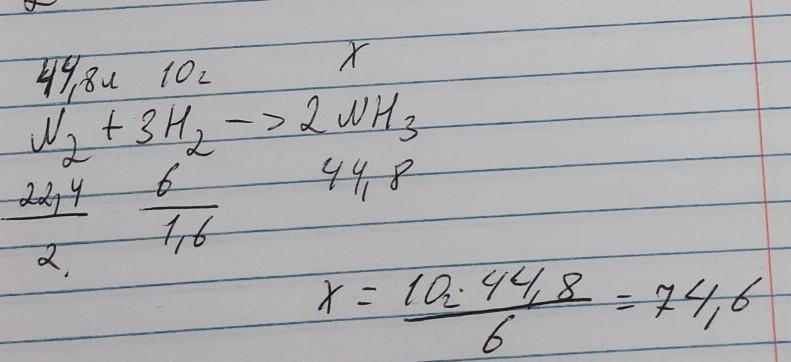 44,8л 10г x
N₂ + 3H₂ -> 2NH₃
22,4/2. 6/1,6 44,8
x = 10г·44,8/6 = 74,6